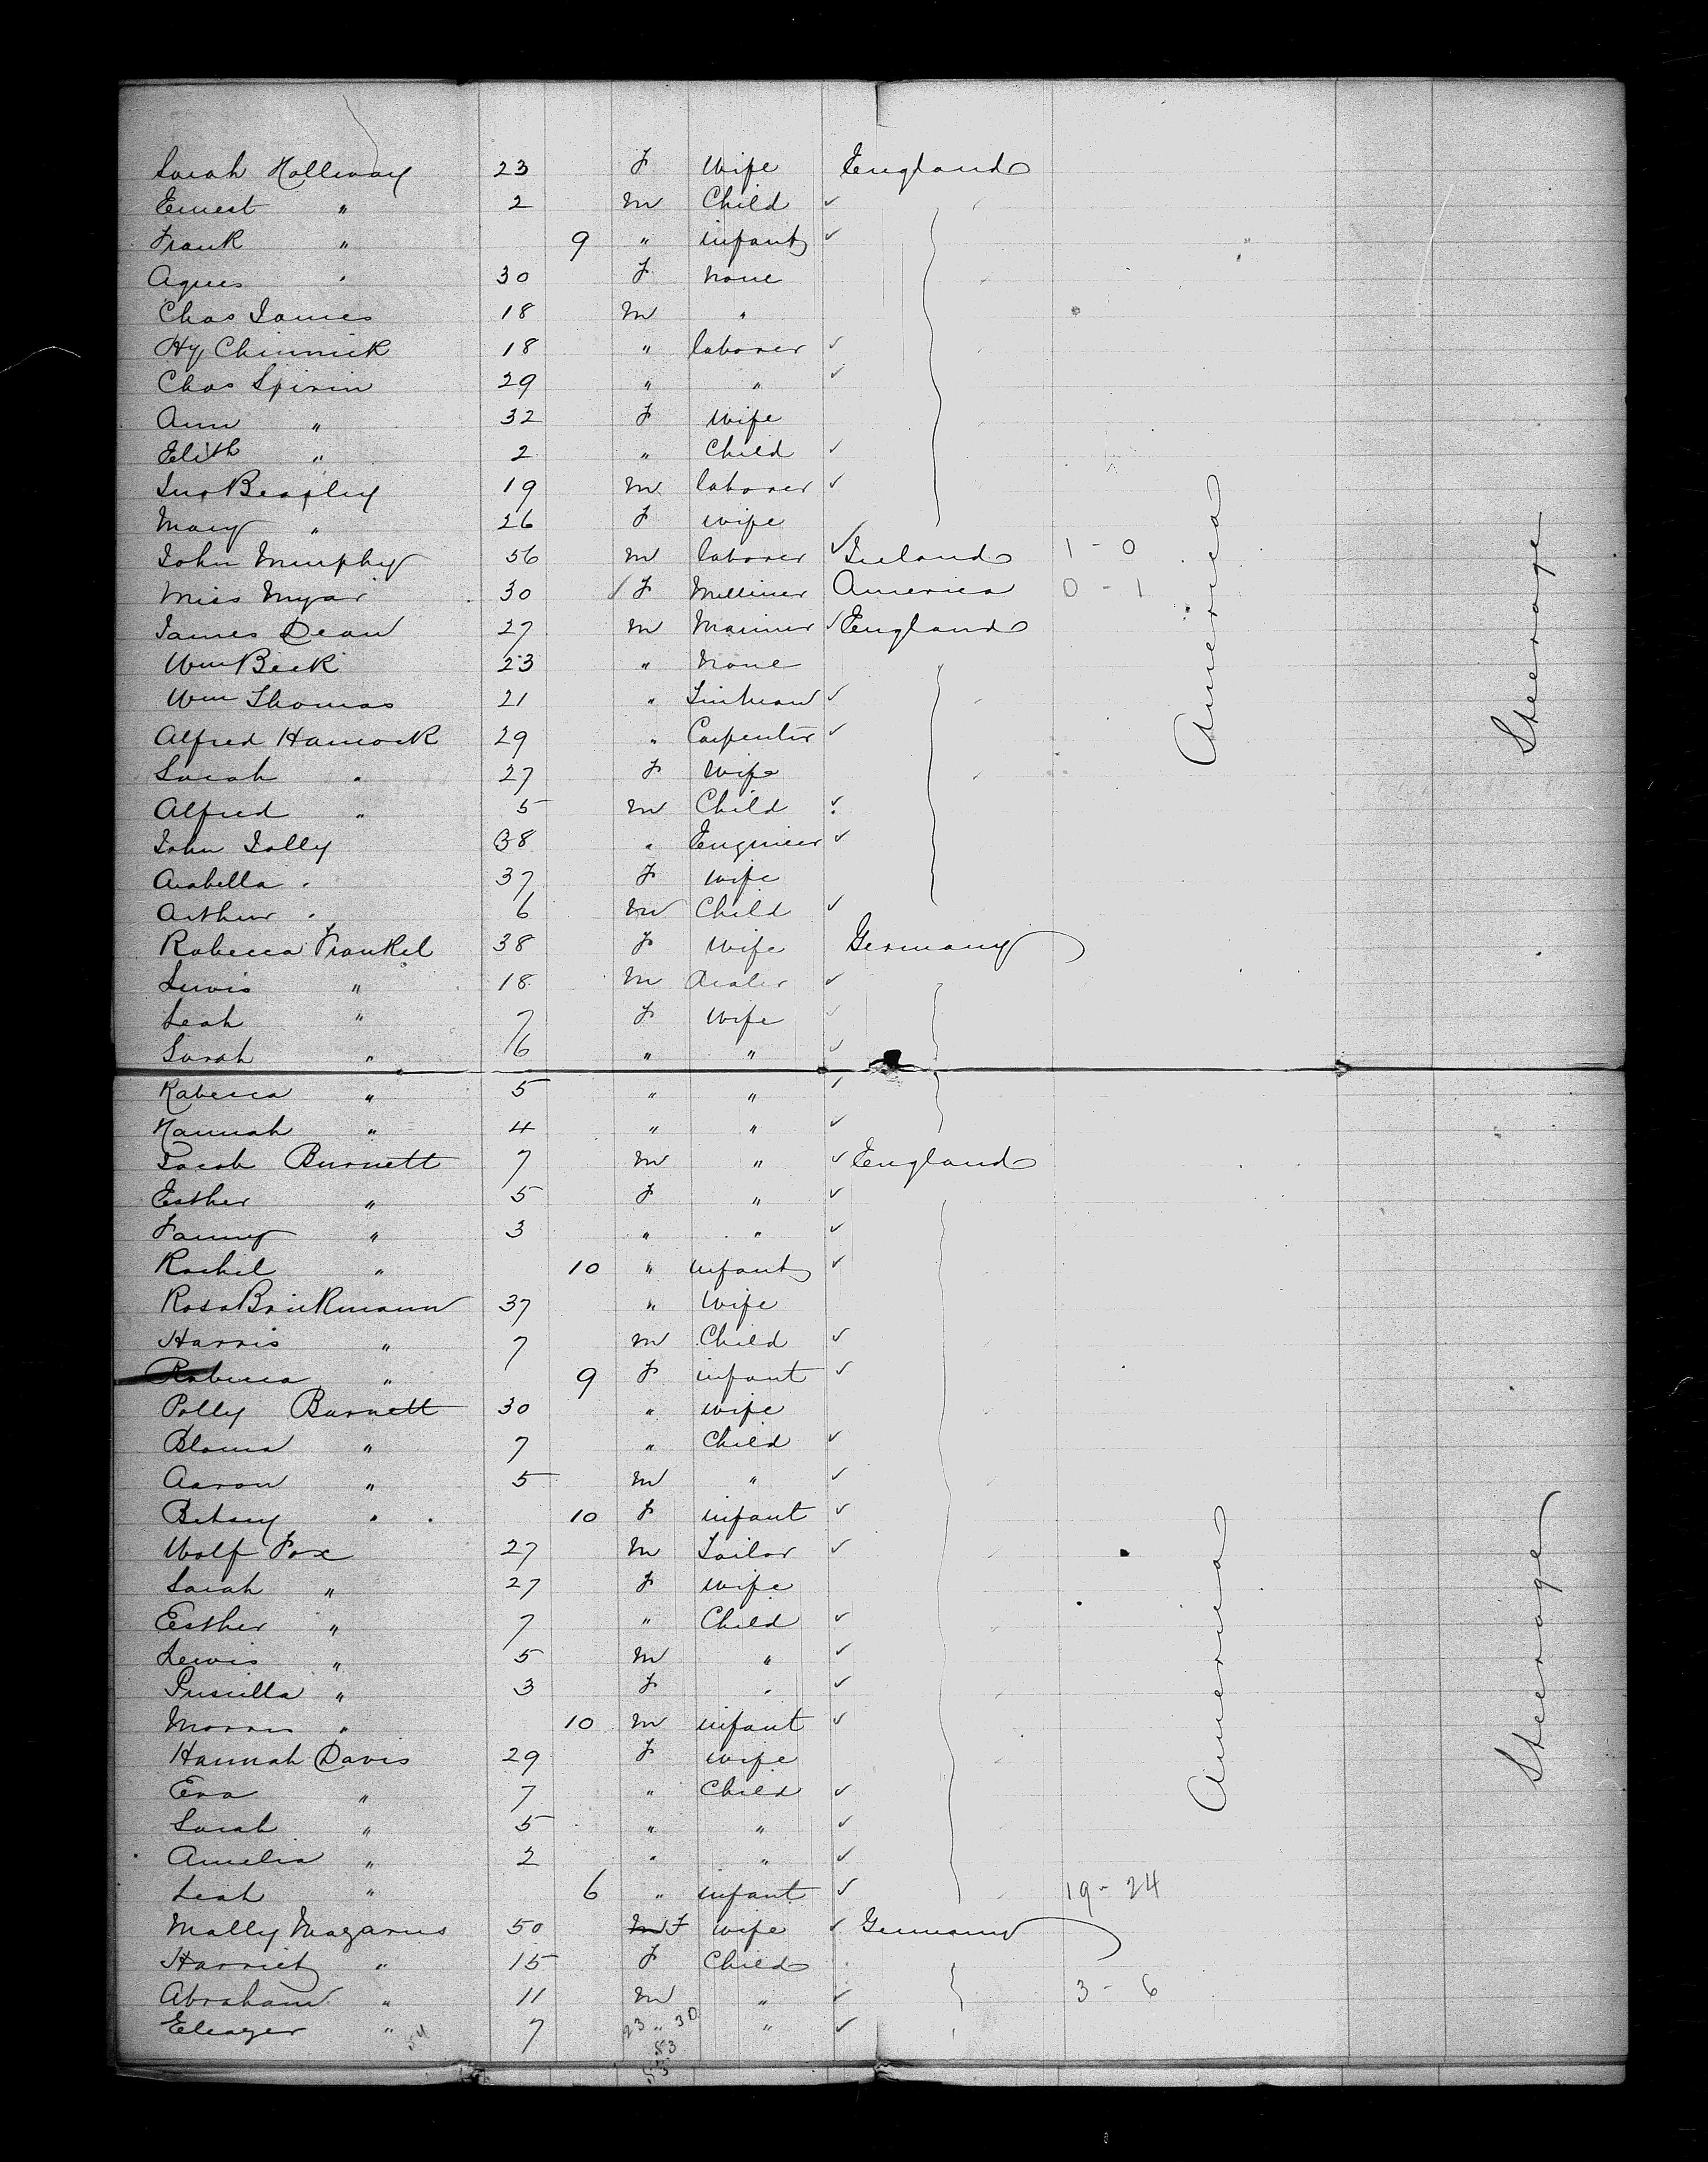 Sarah Holliway 23 F Wife England
Ernest " 2 M Child ✓
Frank " 9 " infant ✓
Agnes " 30 F None
Chas James 18 M "
Hy Chinnick 18 " laborer ✓
Chas Spirin 29 " " ✓
Ann " 32 F Wife
Elith " 2 " Child ✓
Jno Beasley 19 M laborer ✓
Mary " 26 F Wife
John Murphy 56 M laborer ✓ Ireland 1 - 0
Miss Myar 30 ✓ F Milliner America 0 - 1
James Dean 27 M Mariner ✓ England
Wm Beck 23 " None
Wm Thomas 21 " Tinman ✓
Alfred Hancock 29 " Carpenter ✓
Sarah " 27 F Wife
Alfred " 5 M Child ✓
John Jolly 38 " Engineer ✓
Arabella " 37 F Wife
Arthur " 6 M Child ✓
Rabecca Frankel 38 F Wife Germany
Lewis " 18 M Dealer ✓
Leah " 7 F Wife ✓
Sarah " 6 " " ✓
Rabecca " 5 " " ✓
Hannah " 4 " " ✓
Jacob Burnett 7 M " ✓ England
Esther " 5 F " ✓
Fanny " 3 " " ✓
Rachel " 10 " infant ✓
Rosa Brickmann 37 " Wife
Harris " 7 M Child ✓
Rabecca " 9 F infant ✓
Polly Burnett 30 " Wife
Bloma " 7 " Child ✓
Aaron " 5 M " ✓
Betsey " 10 F infant ✓
Wolf Fox 27 M Tailor ✓
Sarah " 27 F Wife
Esther " 7 " Child ✓
Lewis " 5 M " ✓
Priscilla " 3 F " ✓
Morris " 10 M infant ✓
Hannah Davis 29 F Wife
Eva " 7 " Child ✓
Sarah " 5 " " ✓
Amelia " 2 " " ✓
Leah " 6 " infant ✓ 19 - 24
Mally Magarus 50 M F Wife ✓ Germany
Harriet " 15 F Child
Abraham " 11 M " ✓ 3 - 6
Eleazer " 7 " " ✓
23 30
53
53
America
Steerage
America
Steerage